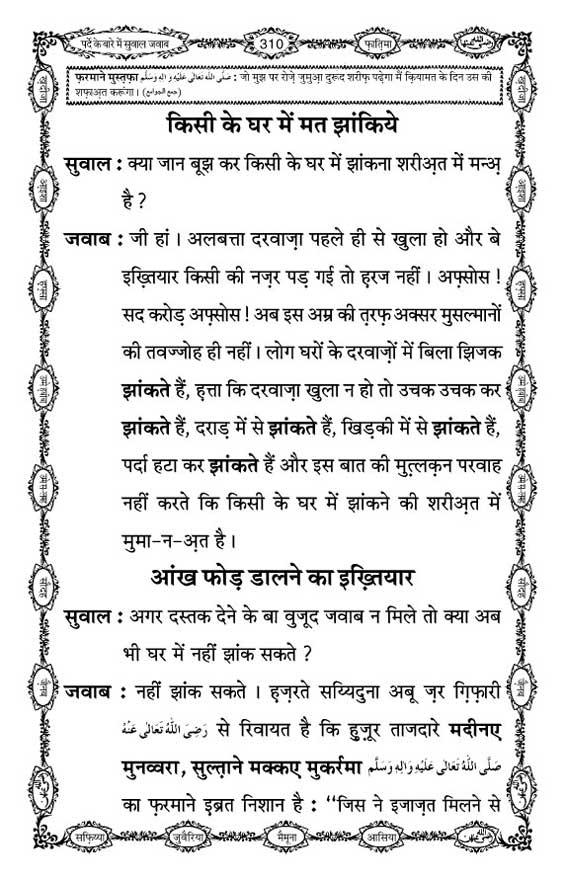 पर्दे के बारे में सुवाल जवाब
310
फ़ातिमा
फ़रमाने मुस्तफ़ा صَلَّى اللهُ تَعَالٰى عَلَيْهِ وَاٰلِهٖ وَسَلَّم : जो मुझ पर रोज़े जुमुआ दुरूद शरीफ़ पढ़ेगा मैं क़ियामत के दिन उस की
शफ़ाअ़त करूंगा । (جمع الجوامع)
किसी के घर में मत झांकिये
सुवाल : क्या जान बूझ कर किसी के घर में झांकना शरीअ़त में मन्अ़
है ?
जवाब : जी हां । अलबत्ता दरवाज़ा पहले ही से खुला हो और बे
इख़्तियार किसी की नज़र पड़ गई तो हरज नहीं । अफ़्सोस !
सद करोड़ अफ़्सोस ! अब इस अम्र की त़रफ़ अक्सर मुसल्मानों
की तवज्जोह ही नहीं । लोग घरों के दरवाज़ों में बिला झिजक
झांकते हैं, ह़त्ता कि दरवाज़ा खुला न हो तो उचक उचक कर
झांकते हैं, दराड़ में से झांकते हैं, खिड़की में से झांकते हैं,
पर्दा हटा कर झांकते हैं और इस बात की मुत़्लक़न परवाह
नहीं करते कि किसी के घर में झांकने की शरीअ़त में
मुमा-न-अ़त है ।
आंख फोड़ डालने का इख़्तियार
सुवाल : अगर दस्तक देने के बा वुजूद जवाब न मिले तो क्या अब
भी घर में नहीं झांक सकते ?
जवाब : नहीं झांक सकते । ह़ज़रते सय्यिदुना अबू ज़र ग़िफ़ारी
رَضِىَ اللهُ تَعَالٰى عَنْهُ से रिवायत है कि हुज़ूर ताजदारे मदीनए
मुनव्वरा, सुल्त़ाने मक्कए मुकर्रमा صَلَّى اللهُ تَعَالٰى عَلَيْهِ وَاٰلِهٖ وَسَلَّم
का फ़रमाने इब्रत निशान है : ‘‘जिस ने इजाज़त मिलने से
सफ़िय्या
जुवैरिया
मैमूना
आसिया